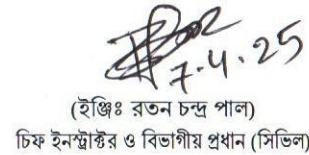 7.4.25
(ইঞ্জিঃ রতন চন্দ্র পাল)
চিফ ইনস্ট্রাক্টর ও বিভাগীয় প্রধান (সিভিল)